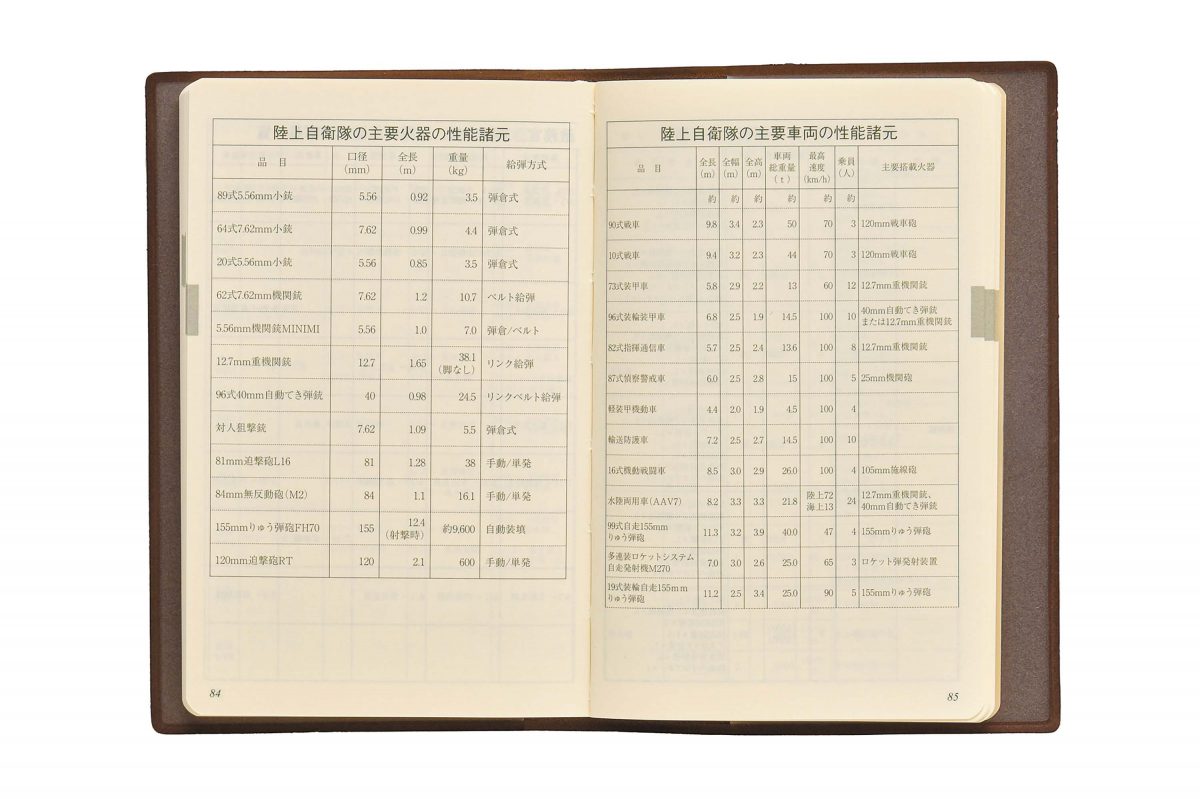 陸上自衛隊の主要火器の性能諸元
品 目 口径(mm) 全長(m) 重量(kg) 給弾方式
89式5.56mm小銃 5.56 0.92 3.5 弾倉式
64式7.62mm小銃 7.62 0.99 4.4 弾倉式
20式5.56mm小銃 5.56 0.85 3.5 弾倉式
62式7.62mm機関銃 7.62 1.2 10.7 ベルト給弾
5.56mm機関銃MINIMI 5.56 1.0 7.0 弾倉/ベルト
12.7mm重機関銃 12.7 1.65 38.1(脚なし) リンク給弾
96式40mm自動てき弾銃 40 0.98 24.5 リンクベルト給弾
対人狙撃銃 7.62 1.09 5.5 弾倉式
81mm迫撃砲L16 81 1.28 38 手動/単発
84mm無反動砲(M2) 84 1.1 16.1 手動/単発
155mmりゅう弾砲FH70 155 12.4(射撃時) 約9,600 自動装填
120mm迫撃砲RT 120 2.1 600 手動/単発
84
陸上自衛隊の主要車両の性能諸元
品 目 全長(m) 全幅(m) 全高(m) 車両総重量(t) 最高速度(km/h) 乗員(人) 主要搭載火器
約 約 約 約 約 約
90式戦車 9.8 3.4 2.3 50 70 3 120mm戦車砲
10式戦車 9.4 3.2 2.3 44 70 3 120mm戦車砲
73式装甲車 5.8 2.9 2.2 13 60 12 12.7mm重機関銃
96式装輪装甲車 6.8 2.5 1.9 14.5 100 10 40mm自動てき弾銃または12.7mm重機関銃
82式指揮通信車 5.7 2.5 2.4 13.6 100 8 12.7mm重機関銃
87式偵察警戒車 6.0 2.5 2.8 15 100 5 25mm機関砲
軽装甲機動車 4.4 2.0 1.9 4.5 100 4
輸送防護車 7.2 2.5 2.7 14.5 100 10
16式機動戦闘車 8.5 3.0 2.9 26.0 100 4 105mm施線砲
水陸両用車(AAV7) 8.2 3.3 3.3 21.8 陸上72 海上13 24 12.7mm重機関銃、40mm自動てき弾銃
99式自走155mmりゅう弾砲 11.3 3.2 3.9 40.0 47 4 155mmりゅう弾砲
多連装ロケットシステム自走発射機M270 7.0 3.0 2.6 25.0 65 3 ロケット弾発射装置
19式装輪自走155mmりゅう弾砲 11.2 2.5 3.4 25.0 90 5 155mmりゅう弾砲
85